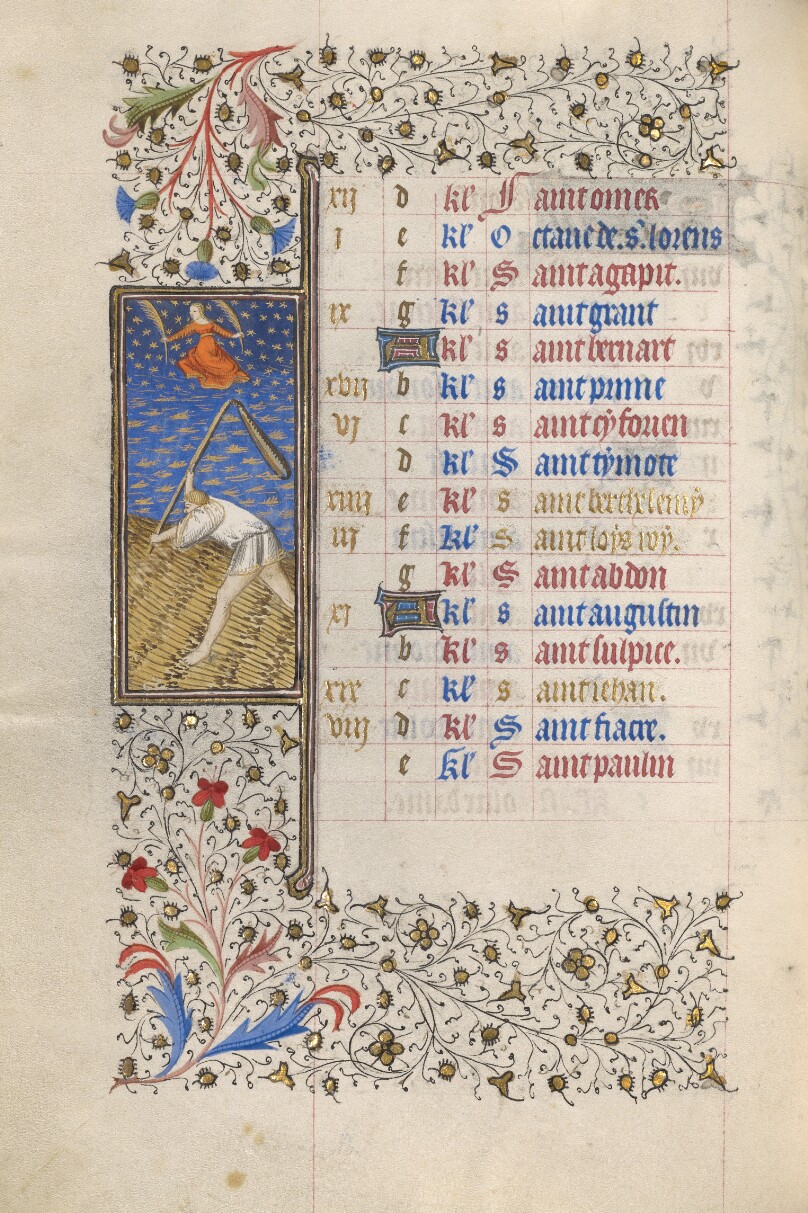 xij d kl' Saint omer
j e kl' Octave de. s. lorens
f kl' Saint agapit.
ix g kl' saint grant
A kl' saint bernart
xvij b kl' saint prime
vj c kl' saint cyforien
d kl' Saint tymote
xiiij e kl' saint berthelemy
iij f kl' Saint loys roy.
g kl' Saint abdon
xj A kl' saint augustin
b kl' saint sulpice.
xix c kl' saint iehan.
viij d kl' Saint fiacre.
e kl' Saint paulin